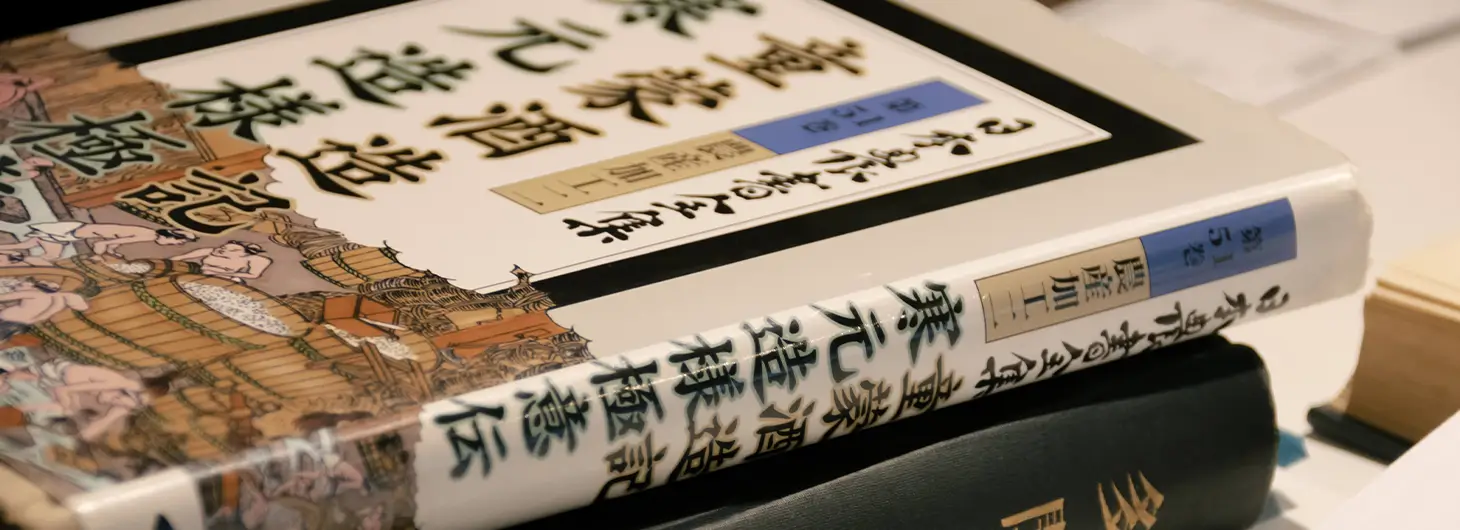 日本農書全集
第51巻
農産加工二
童蒙酒造記
寒元造様極
日本農書全集
第51巻
農産加工二
童蒙酒造記
寒元造様極意伝